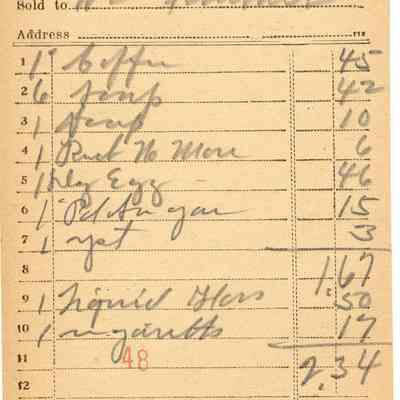 Sold to
Address
1 1 Coffee 45
2 6 Soap 42
3 1 Soap 10
4 1 Rub No More 6
5 1 Dz Egg 46
6 1 15
7 1 yst 3
8 1.67
9 1 Liquid 50
10 1 17
11 48 2.34
12